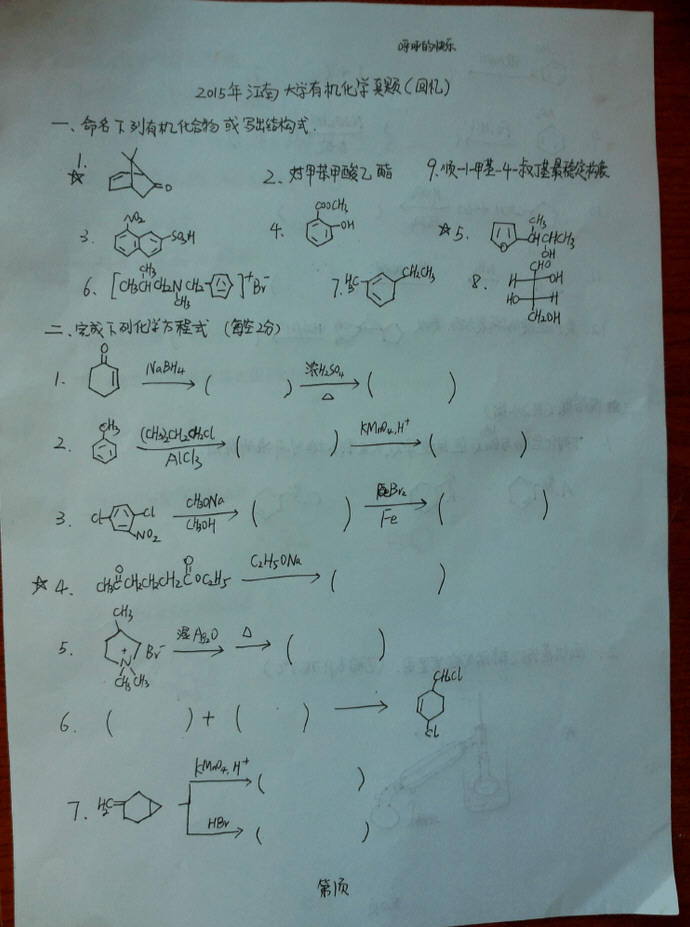 呼呼的快乐
2015年江南大学有机化学真题(回忆)
一、命名下列有机化合物或写出结构式.
1. ☆ O
2. 对甲苯甲酸乙酯
9. 顺-1-甲基-4-叔丁基最稳定构象
3. NO2 SO3H
4. COOCH3 OH
☆5. O CH3 CHCHCH3 OH
6. [CH3CHCH2NCH2 CH3 CH3]+Br-
7. H3C CH2CH3
8. CHO H OH HO H CH2OH
二、完成下列化学方程式 (每空2分)
1. O NaBH4 ( ) 浓H2SO4 △ ( )
2. CH3 (CH3)2CH2CH2Cl AlCl3 ( ) KMnO4,H+ ( )
3. Cl Cl NO2 CH3ONa CH3OH ( ) Br2 Fe ( )
☆4. CH3CCH2CH2CH2COC2H5 O O C2H5ONa ( )
5. CH3 N+ CH3 CH3 Br- 湿Ag2O △ ( )
6. ( ) + ( ) CH2Cl Cl
7. H2C= KMnO4,H+ ( )
HBr ( )
第1页